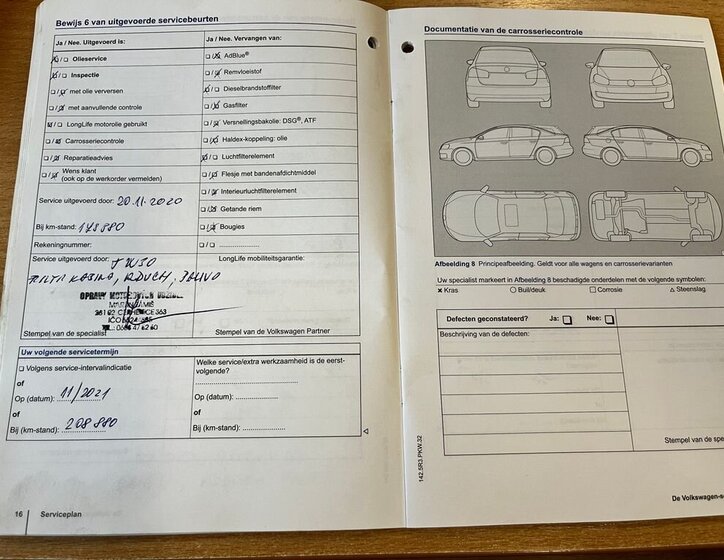 Bewijs 6 van uitgevoerde servicebeurten
Ja / Nee. Uitgevoerd is:
Olieservice
Inspectie
met olie verversen
met aanvullende controle
LongLife motorolie gebruikt
Carrosseriecontrole
Reparatieadvies
Wens klant
(ook op de werkorder vermelden)
Service uitgevoerd door: 20.11.2020
Bij km-stand: 178 880
Rekeningnummer:
Service uitgevoerd door: 5W30
Stempel van de specialist
Ja / Nee. Vervangen van:
AdBlue®
Remvloeistof
Dieselbrandstoffilter
Gasfilter
Versnellingsbakolie: DSG®, ATF
Haldex-koppeling: olie
Luchtfilterelement
Flesje met bandenafdichtmiddel
Interieurluchtfilterelement
Getande riem
Bougies
LongLife mobiliteitsgarantie:
Stempel van de Volkswagen Partner
Uw volgende servicetermijn
Volgens service-intervalindicatie
of
Op (datum): 11/2021
of
Bij (km-stand): 208 880
Welke service/extra werkzaamheid is de eerst-
volgende?
Op (datum):
of
Bij (km-stand):
16 Serviceplan
Documentatie van de carrosseriecontrole
Afbeelding 8 Principeafbeelding. Geldt voor alle wagens en carrosserievarianten
Uw specialist markeert in Afbeelding 8 beschadigde onderdelen met de volgende symbolen:
× Kras ○ Buil/deuk □ Corrosie △ Steenslag
Defecten geconstateerd? Ja: Nee:
Beschrijving van de defecten:
Stempel van de spe
142.5R3.PKW.32
De Volkswagen-s